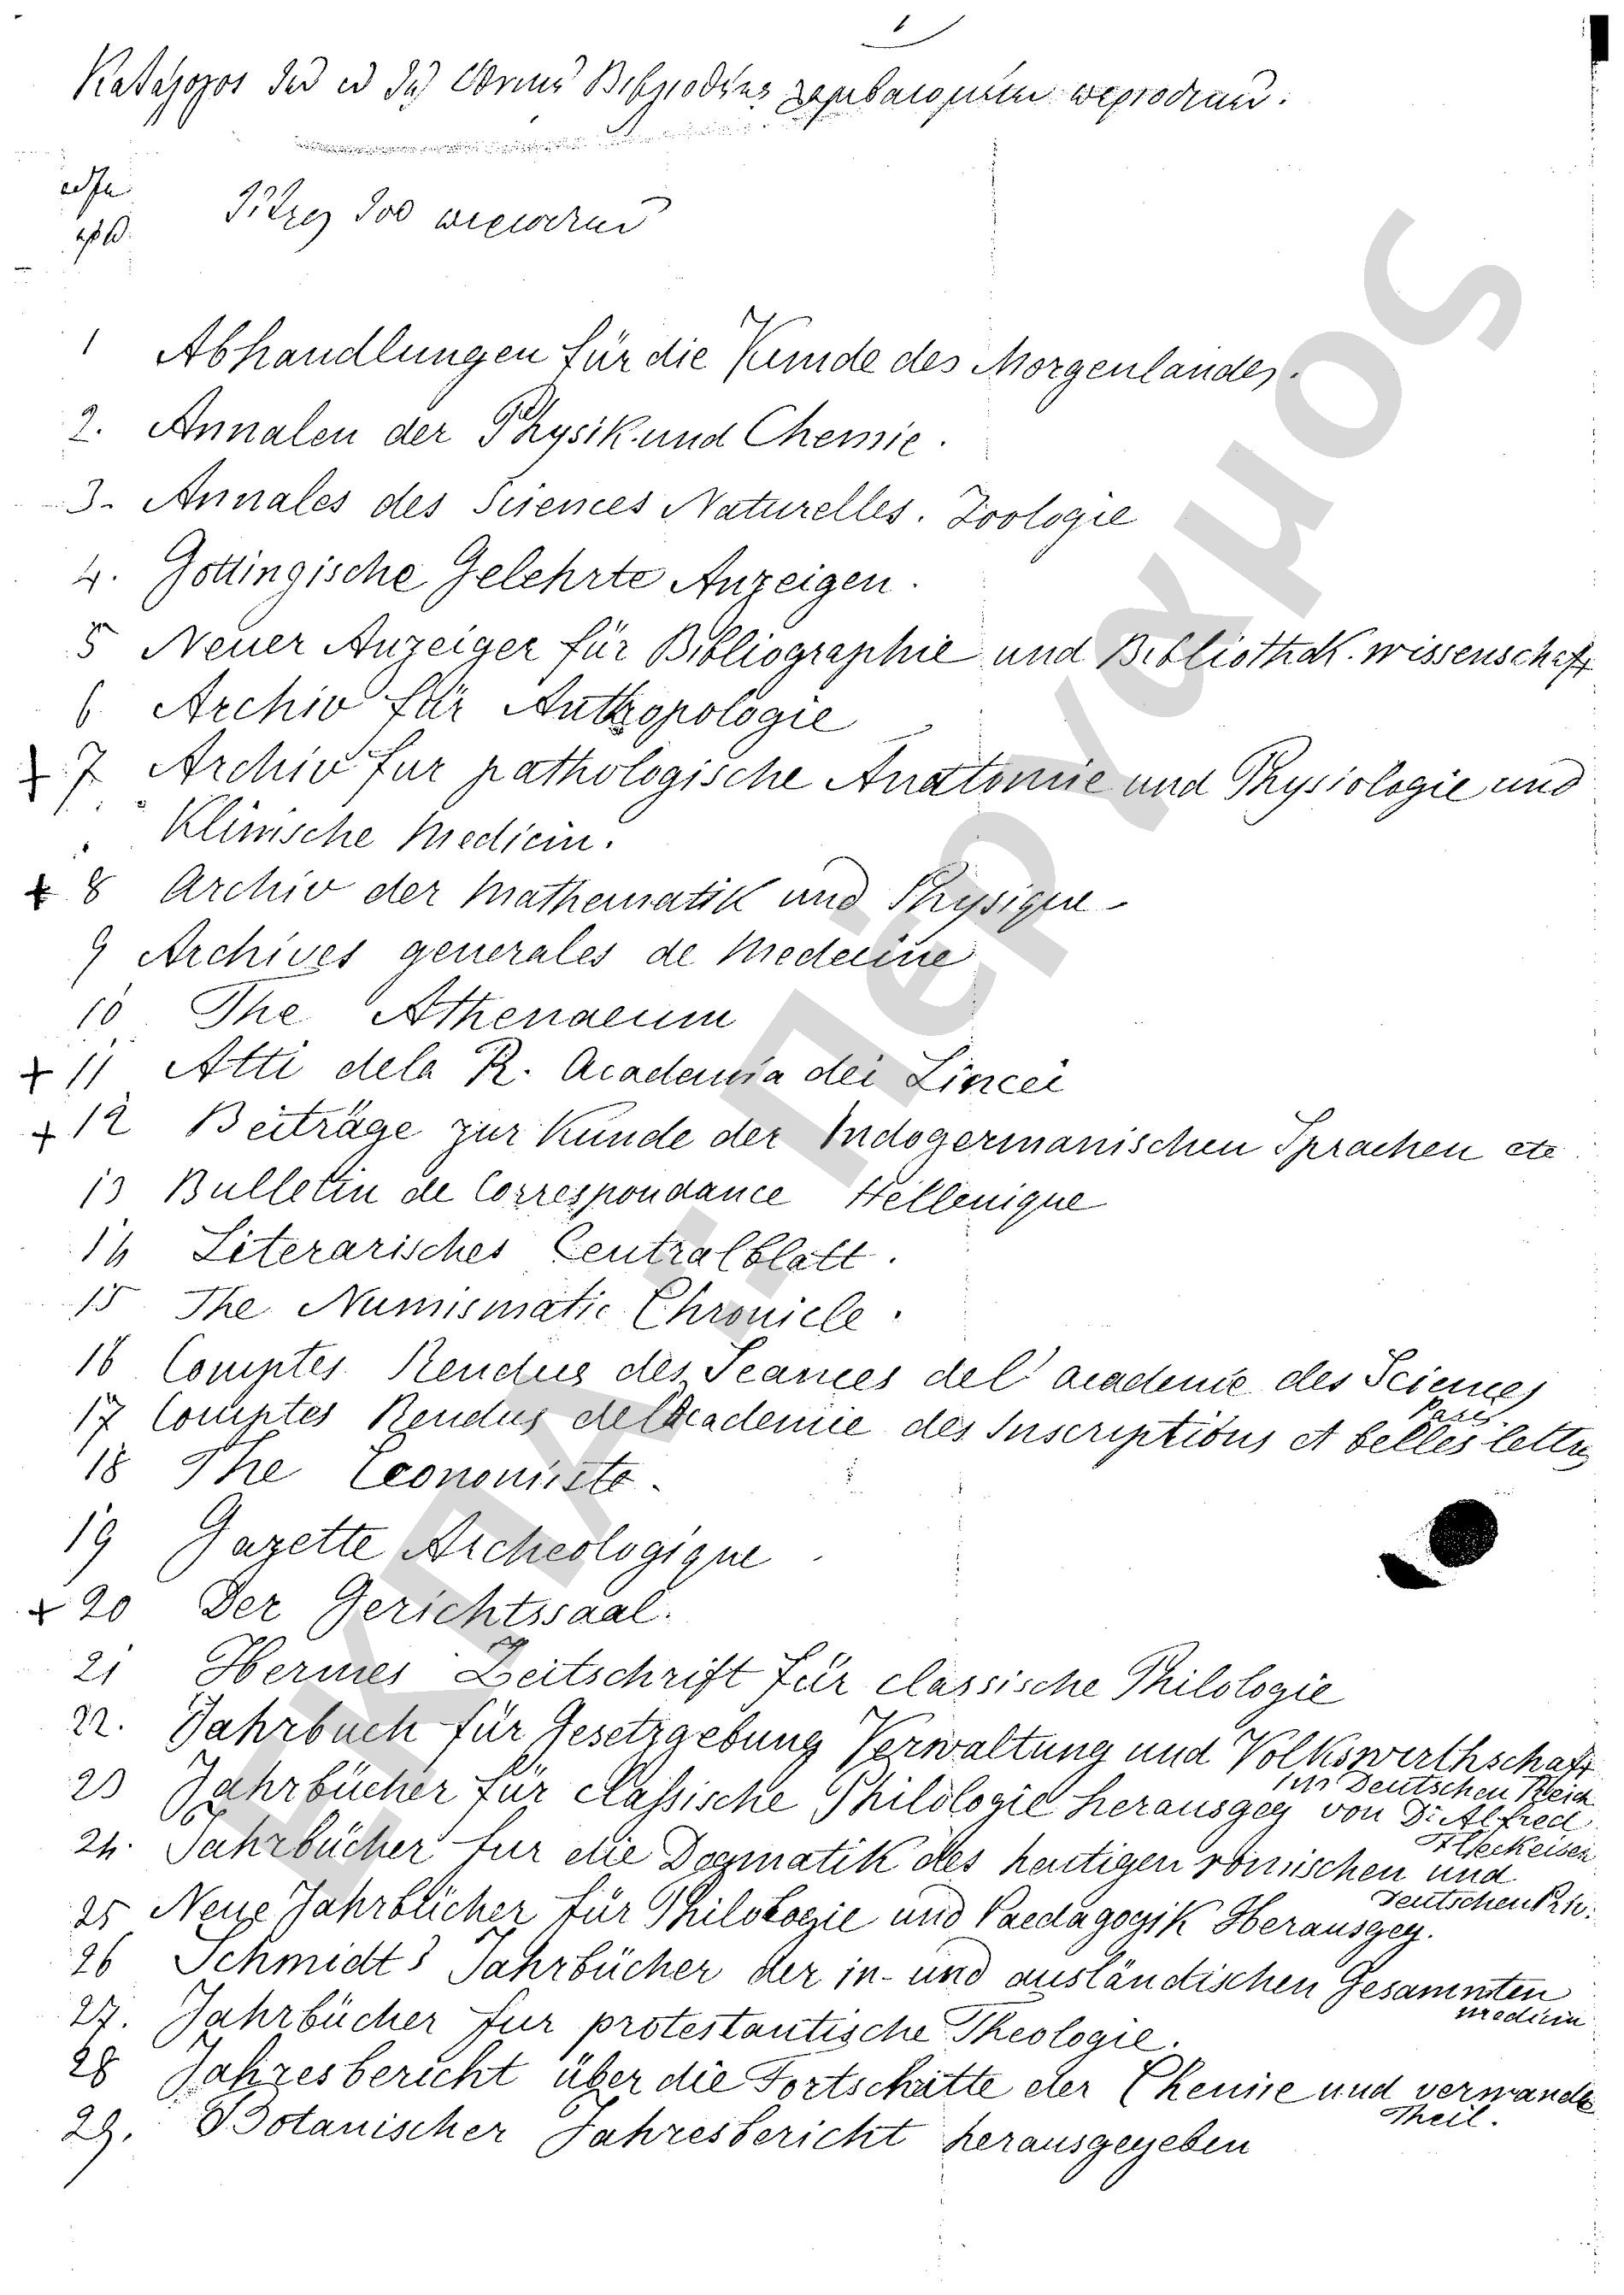 Κατάλογος τῶν ἐν τῇ Ἐθνικῇ Βιβλιοθήκῃ περιοδικῶν.
Τίτλος τοῦ περιοδικοῦ
1 Abhandlungen für die Kunde des Morgenlandes.
2. Annalen der Physik und Chemie.
3. Annales des Sciences Naturelles. Zoologie
4. Gottingische Gelehrte Anzeigen.
5 Neuer Anzeiger für Bibliographie und Bibliothek. wissenschaft
6. Archiv für Anthropologie
7 Archiv fur pathologische Anatomie und Physiologie und
Klinische Medicin.
8 Archiv der Mathematik und Physique
9 Archives generales de Medecine
10 The Athenaeum
11 Atti dela R. Academia dei Lincei
12 Beiträge zur Kunde der Indogermanischen Sprachen etc
13 Bulletin de Correspondance Hellenique
14 Literarisches Centralblatt.
15 The Numismatic Chronicle.
16 Comptes Rendus des Seances del' academie des Sciences
Paris.
17 Comptes Rendus del Academie des Inscriptions et belles lettres
18 The Economiste.
19 Gazette Archeologique
20 Der Gerichtssaal.
21 Hermes Zeitschrift für classische Philologie
22. Jahrbuch für Gesetzgebung Verwaltung und Volkswirthschaft
im Deutschen Reich
23 Jahrbücher für classische Philologie herausgeg von Dr Alfred
Fleckeisen
24. Jahrbücher fur die Dogmatik des heutigen römischen und
deutschen
25 Neue Jahrbücher für Philologie und Paedagogik Herausgeg.
26 Schmidt's Jahrbücher der in- und ausländischen Gesammten
medicin
27. Jahrbücher fur protestantische Theologie.
28 Jahresbericht über die Fortschritte der Chemie und verwandte
Theil.
29. Botanischer Jahresbericht herausgegeben
ΕΚΠΑ-"Πέργαμος